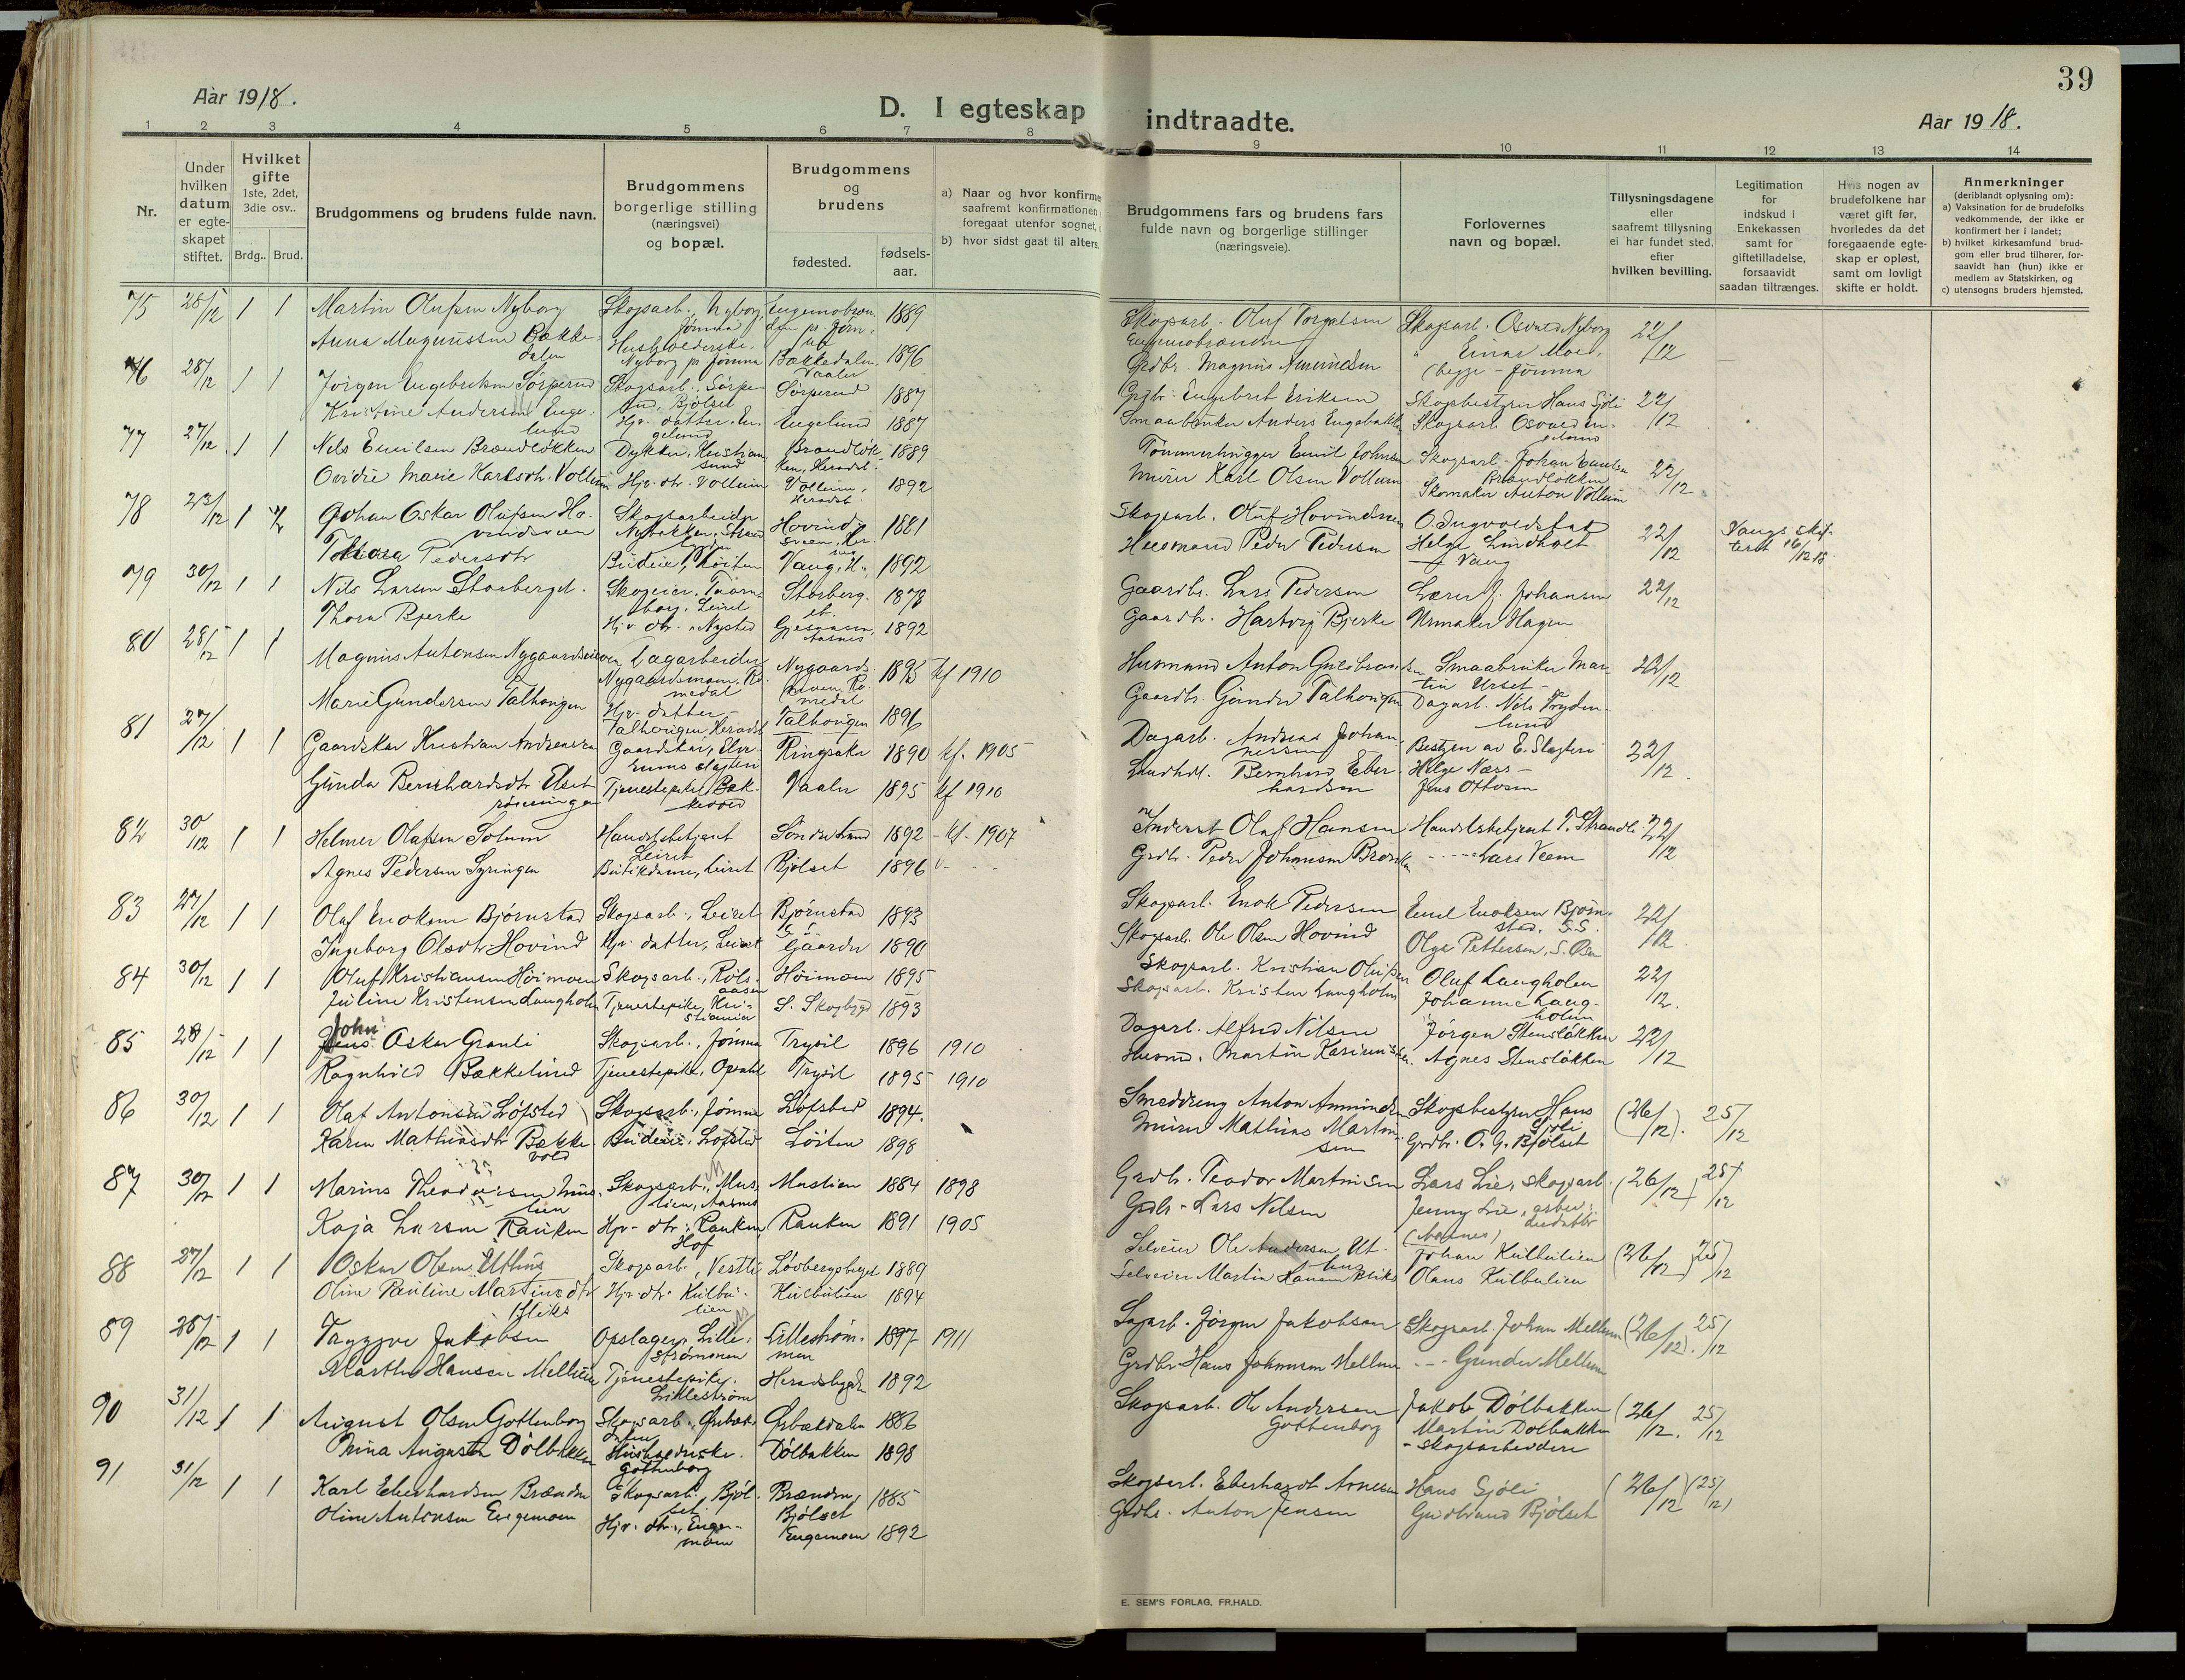 39
Aar 1918.
D. I egteskap indtraadte.
Aar 1918.
1 2 3 4 5 6 7 8 9 10 11 12 13 14
Nr.
Under hvilken datum er egteskapet stiftet.
Hvilket gifte 1ste, 2det, 3die osv..
Brdg.. Brud.
Brudgommens og brudens fulde navn.
Brudgommens borgerlige stilling (næringsvei) og bopæl.
Brudgommens og brudens
fødested.
fødselsaar.
a) Naar og hvor konfirme
saafremt konfirmationen
foregaat utenfor sognet,
b) hvor sidst gaat til alters.
Brudgommens fars og brudens fars
fulde navn og borgerlige stillinger
(næringsveie).
Forlovernes
navn og bopæl.
Tillysningsdagene
eller
saafremt tillysning
ei har fundet sted,
efter
hvilken bevilling.
Legitimation
for
indskud i
Enkekassen
samt for
giftetilladelse,
forsaavidt
saadan tiltrænges.
Hvis nogen av
brudefolkene har
været gift før,
hvorledes da det
foregaaende egte-
skap er opløst,
samt om lovligt
skifte er holdt.
Anmerkninger
(deriblandt oplysning om):
a) Vaksination for de brudefolks
vedkommende, der ikke er
konfirmert her i landet;
b) hvilket kirkesamfund brud-
gom eller brud tilhører, for-
saavidt han (hun) ikke er
medlem av Statskirken, og
c) utensogns bruders hjemsted.
75 28/12 1 1 Martin Olufsen Nyborg Skogsarb., Nyborg, Jømna 1889 Skogsarb. Oluf Torgalsen Skogsarb. Osvald Nyborg 22/12
Anna Magnussen Bækkedalen Husholderske. Nyborg pr Jømna Bækkedalen Vaaler 1896 Grdbr. Magnus Amundsen " Einar Moen, (begge - Jømna
76 28/12 1 1 Jørgen Engebretsen Sørperud Skogsarb. Sørperud, Bjølset Sørperud 1887 Grdbr. Engebret Eriksen Skogbestyrer Hans Sjøli 22/12
Kristine Andersen Engelund Hjv. datter, Engelund Engelund 1887 Smaabruker Anders Engebakken Skogsarb. Osvald Engelund
77 27/12 1 1 Nils Emilsen Brændløkken Dykker, Kristiansund Brændløkken, Heradsb. 1889 Tømmerhugger Emil Johnsen Skogsarb. Johan Emilsen Brændløkken 22/12
Ovidie Marie Karlsdtr. Vollum Hjv. dtr. Vollum Vollum, Heradsb. 1892 Murer Karl Olsen Vollum Skomaker Anton Vollum
78 23/12 1 Johan Oskar Olufsen Hovindsveen Skogsarbeider Nybakken, Strand Hovindsveen 1881 Skogsarb. Oluf Hovindsveen O. Ingvoldstad 22/12
Thora Pedersdtr Budeie, Løiten Vang, H., 1892 Husmand Peder Pedersen Helge Lindholt Vang
79 30/12 1 1 Nils Larsen Storberget. Skogeier, Leiret Storberget 1878 Gaardbr. Lars Pedersen Lærer J. Johansen 22/12
Thora Bjerke Hjv. dtr. Nysted Gjesaasen, Aasnes 1892 Gaardbr. Hartvig Bjerke Urmaker Hagen
80 28/12 1 1 Magnus Antonsen Nygaards Dagarbeider Romedal Romedal 1893 kf 1910 Husmand Anton Gulbrandsen Smaabruker Martin Urset 22/12
Marie Gundersen Talhougen Hjv. datter Talhougen, Heradsb. Talhougen 1896 Gaardbr. Gunder Talhougen Dagarb. Nils Frydenlund
81 27/12 1 1 Gaardskar Kristian Andreassen Gaardskar, Elverums slagteri Ringsaker 1890 kf. 1905 Dagarb. Andreas Johannessen Bestyrer av E. Slagteri 22/12
Gunda Bernhardsdtr. Elset Tjenestepike, Bækkevold Vaaler 1895 kf 1910 Bernhard Eberhardsen Helge Næss - Jens Ottosen
82 30/12 1 1 Helmer Olafsen Solum Handelsbetjent Leiret Søndre Land 1892 - kf - 1907 Olaf Hansen Handelsbetjent T. Strandli 22/12
Agnes Pedersen Syringen Butikdame, Leiret Bjølset 1896 Grdbr. Peder Johansen Lars Veem
83 27/12 1 1 Olaf Enoksen Bjørnstad Skogsarb., Leiret Bjørnstad 1893 Skogsarb. Enok Pedersen Emil Enoksen Bjørnstad, S.S. 22/12
Ingeborg Olsdtr Hovind Hjv. datter, Leiret Gaarder 1890 Skogsarb. Ole Olsen Hovind Olga Pettersen, S. Osen
84 30/12 1 1 Oluf Kristiansen Høimoen Skogsarb., Rølsaasen Høimoen 1895 Skogsarb. Kristian Olufsen Oluf Langholen 22/12.
Juline Kristensen Langholen Tjenestepike, Kristiania S. Skogbygd 1893 Skogsarb. Kristen Langholen Johanne Langholen
85 28/12 1 1 John Oskar Granli Skogsarb., Jømna Trysil 1896 1910 Dagarb. Alfred Nilsen Jørgen Stensløkken 22/12
Ragnhild Bækkelund Tjenestepike, Opsahl Trysil 1895 1910 Husmd. Martin Kasimirsen. Agnes Stensløkken
86 30/12 1 1 Olaf Antonsen Løfsted Skogsarb., Jømna Løfsted 1894. Smeddreng Anton Amundsen Skogsbestyrer Hans Sjøli (26/12). 25/12
Karen Mathiasdtr Bækkevold Budeie, Løfsted Løiten 1898 Murer Mathias Martinsen Grdbr. O. G. Bjølset
87 30/12 1 1 Marius Theodorsen Muslien Skogsarb., Muslien, Aasnes Muslien 1884 1898 Grdbr. Teodor Martinsen Lars Lie, skogsarb. (26/12) 25/12
Kaja Larsen Rauken Hjv. dtr. Rauken, Hof Rauken 1891 1905 Grdbr. Lars Nilsen Jenny Lie, (Aasnes)
88 27/12 1 1 Oskar Olsen Uthus Skogsarb., Vestli Løvbergsbygd 1889 Selveier Ole Andersen Uthus Johan Kulbulien (26/12) 25/12
Oline Pauline Martinsdtr Bliks Hjv. dtr. Kulbulien Kulbulien 1894 Selveier Martin Hansen Bliks Olaus Kulbulien
89 28/12 1 1 Tryggve Jakobsen Opslager, Lillestrømmen Lillestrømmen 1897 1911 Sagarb. Jørgen Jakobsen Skogsarb. Johan Mellum (26/12). 25/12
Marthe Hansen Mellum Tjenestepike. Lillestrøm Heradsbygden 1892 Grdbr. Hans Johansen Mellum - Gunder Mellum
90 31/12 1 1 August Olsen Gottenborg Skogsarb., Ørbækdalen Ørbækdalen 1886 Skogsarb. Ole Andersen Gottenborg Jakob Dølbakken (26/12. 25/12
Nina Augusta Dølbakken Husholderske. Gottenborg Dølbakken 1898 Martin Dølbakken - skogsarbeidere
91 31/12 1 1 Karl Eberhardsen Brænden Skogsarb., Bjølset Brænden, Bjølset 1885 Skogsarb. Eberhardt Arnesen Hans Sjøli (26/12) (25/12)
Oline Antonsen Engemoen Hjv. dtr., Engemoen Engemoen 1892 Grdbr. Anton Jensen Gudbrand Bjølset
E. SEM'S FORLAG, FR.HALD.